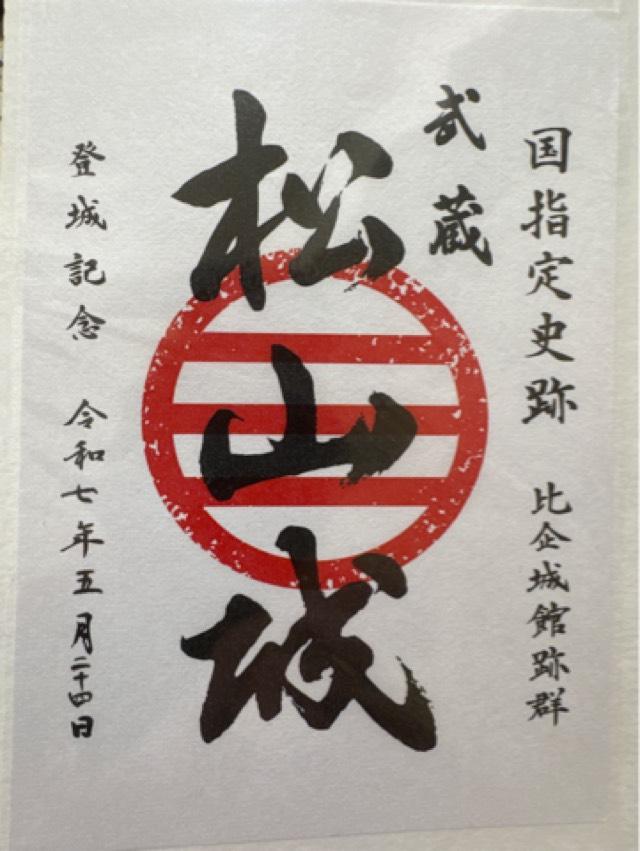 国指定史跡 比企城館跡群
武蔵
松山城
登城記念 令和七年五月二十四日